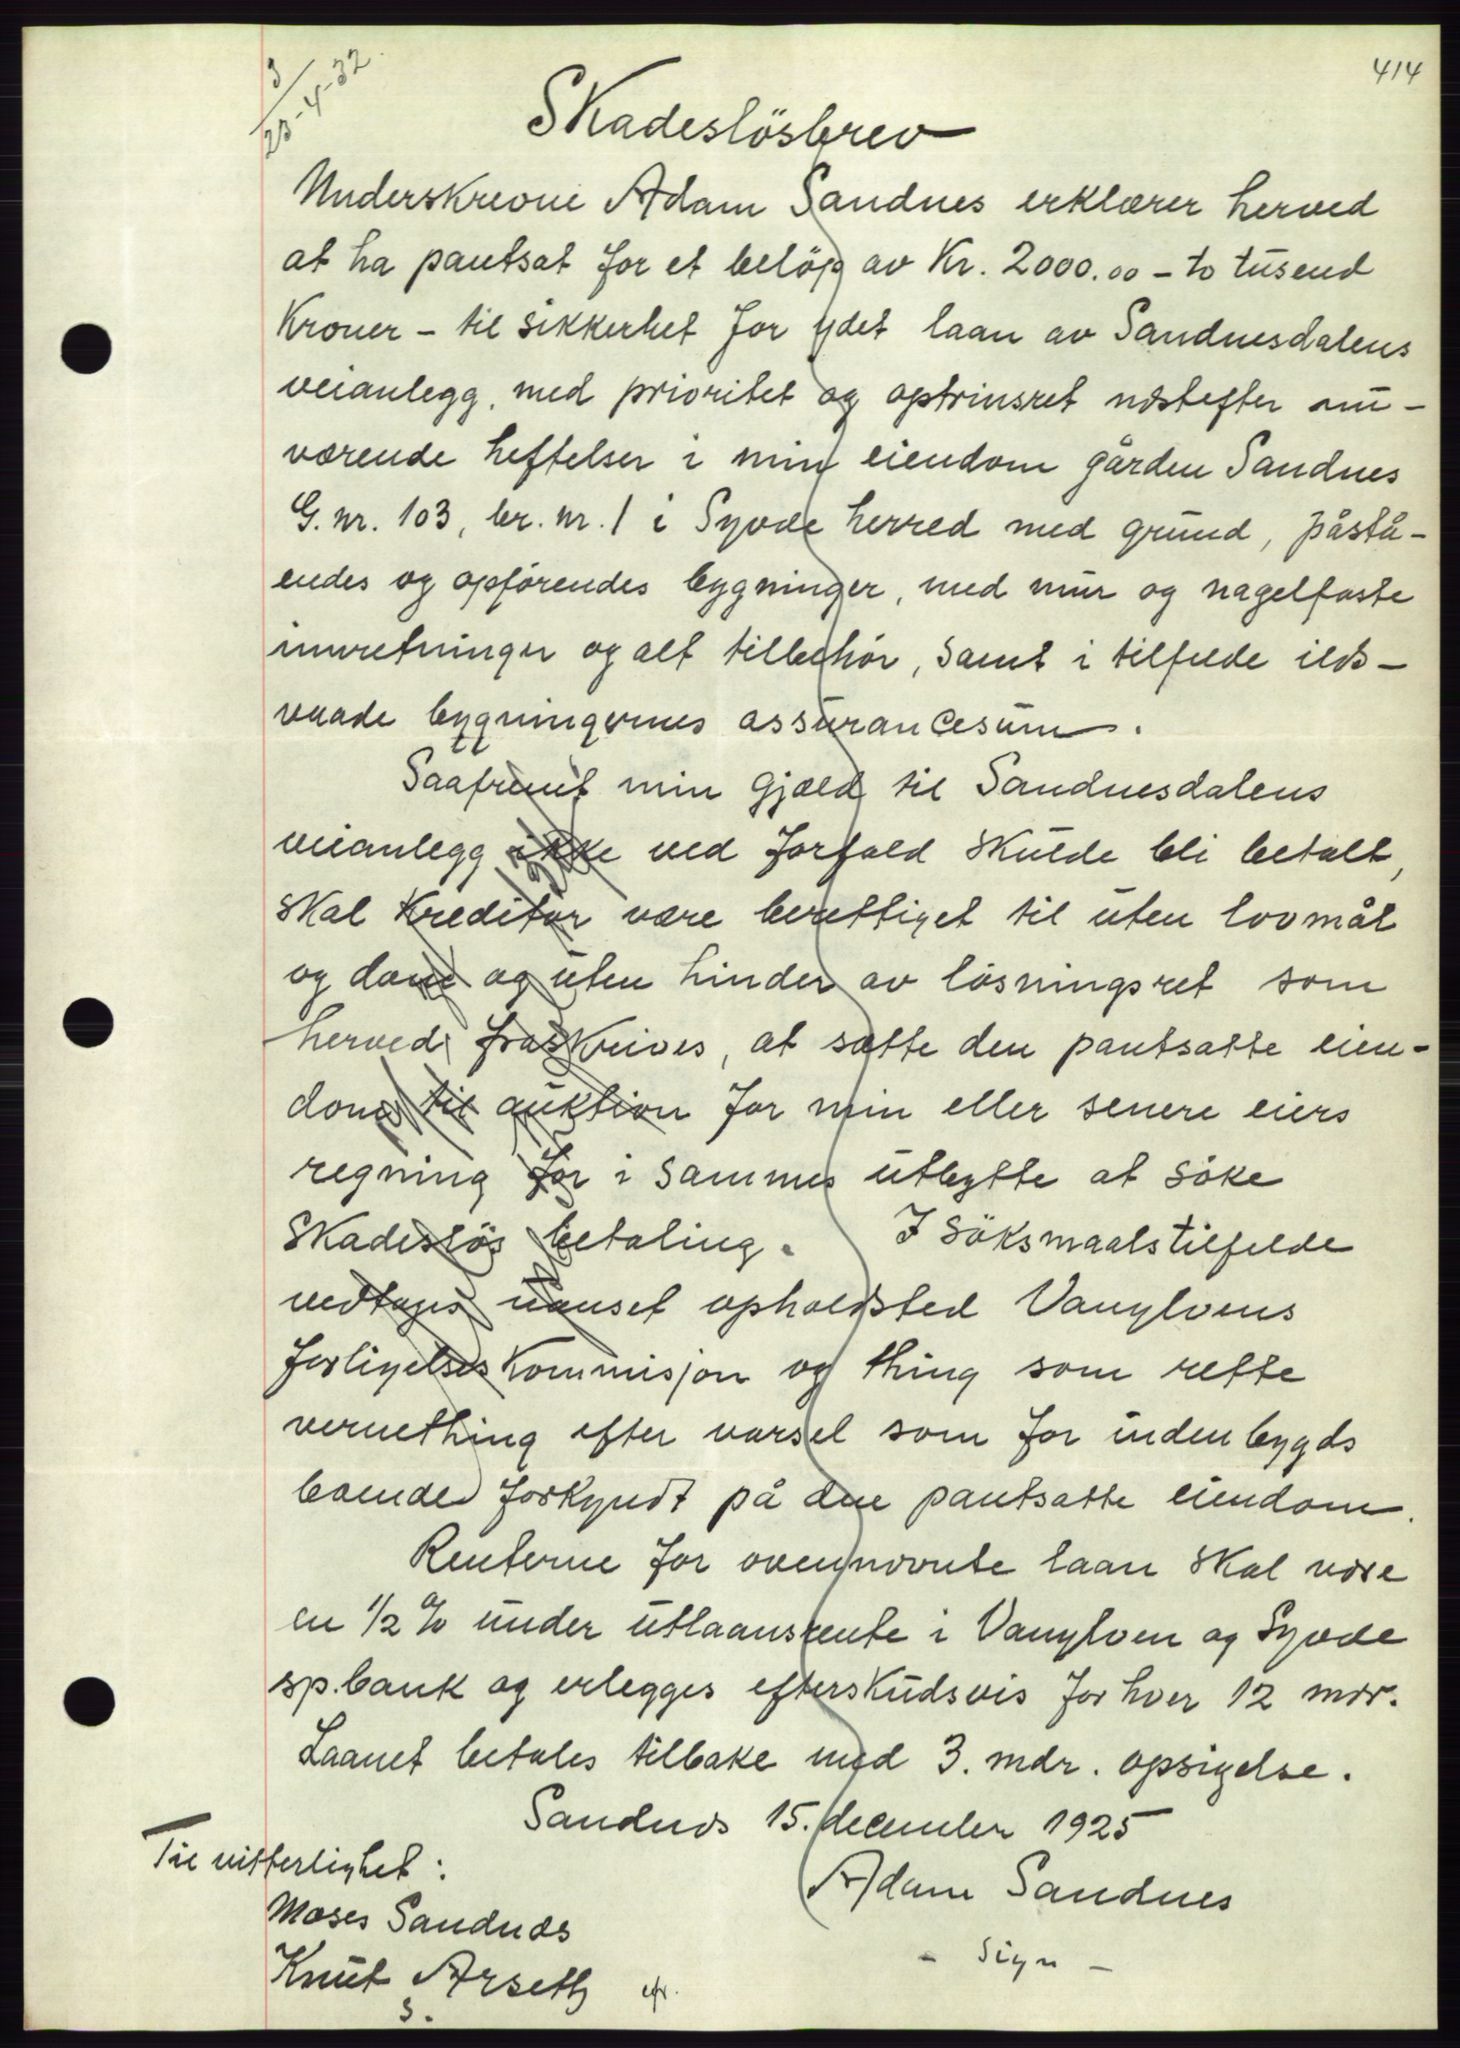 414
3/23-4-32
Skadeslösbrev
Underskrevne Adam Sandnes erklærer herved
at ha pantsat for et beløp av Kr. 2000.00 - to tusend
Kroner - til sikkerhet for ydet laan av Sandnesdalens
veianlegg, med prioritet og optrinsret næstefter nu-
værende heftelser i min eiendom gården Sandnes
G. nr. 103, br. nr. 1 i Syvde herred med grund, påstå-
endes og opførendes bygninger, med mur og nagelfaste
innretninger og alt tilbehör, samt i tilfelde ilds-
vaade bygningernes assurancesum.
Saafremt min gjæld til Sandnesdalens
veianlegg ikke ved forfald skulde bli betalt,
skal kreditor være berettiget til uten lovmål
og dom og uten hinder av løsningsret som
herved fraskrives, at sætte den pantsatte eien-
dom til auktion for min eller senere eiers
regning for i sammes utbytte at søke
skadeslös betaling. I söksmaalstilfelde
vedtages uanset opholdsted Vanylvens
forligelseskommisjon og thing som rette
vernething efter varsel som for indenbygds
boende forkyndt på den pantsatte eiendom.
Renterne for ovennævnte laan skal være
en 1/2 % under utlaansrente i Vanylven og Syvde
sp.bank og erlegges efterskudsvis for hver 12 mdr.
Laanet betales tilbake med 3. mdr. opsigelse.
Sandnes 15. december 1925
Til vitterlighet:
Adam Sandnes
Moses Sandnes
- sign -
Knut Arseth
s.